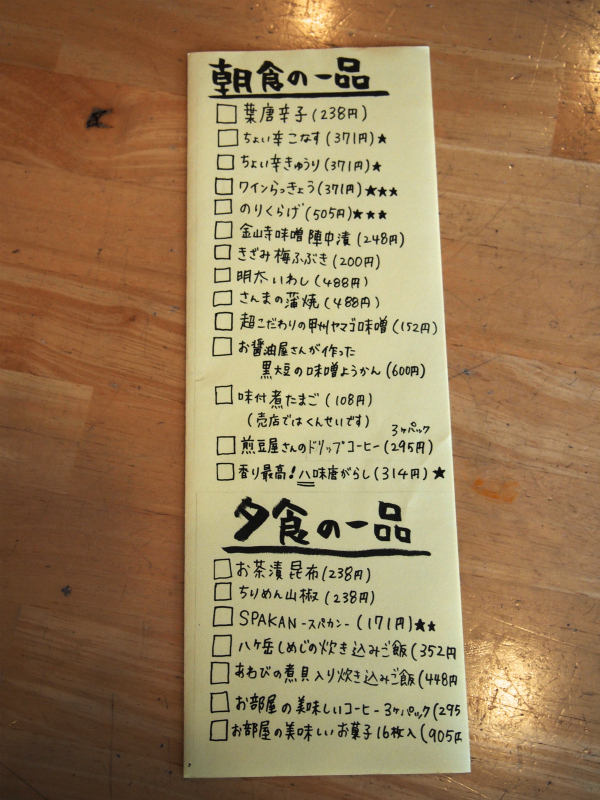 朝食の一品
□葉唐辛子(238円)
□ちょい辛こなす(371円)★
□ちょい辛きゅうり(371円)★
□ワインらっきょう(371円)★★★
□のりくらげ(505円)★★★
□金山寺味噌陣中漬(248円)
□きざみ梅ふぶき(200円)
□明太いわし(488円)
□さんまの蒲焼(488円)
□超こだわりの甲州ヤマゴ味噌(152円)
□お醤油屋さんが作った
黒大豆の味噌ようかん(600円)
□味付煮たまご(108円)
(売店ではくんせいです)
3ヶパック
□煎豆屋さんのドリップコーヒー(295円)
□香り最高!八味唐がらし(314円)★
夕食の一品
□お茶漬昆布(238円)
□ちりめん山椒(238円)
□SPAKAN-スパカン-(171円)★★
□八ヶ岳しめじの炊き込みご飯(352円
□あわびの煮貝入り炊き込みご飯(448円
□お部屋の美味しいコーヒー3ヶパック(295
□お部屋の美味しいお菓子16枚入(905円